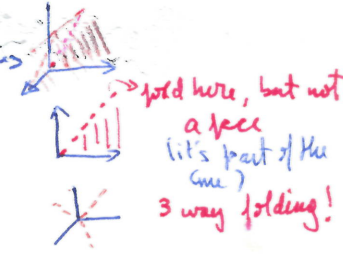 fold here, but not
a face
(it's part of the
cone)
3 way folding!